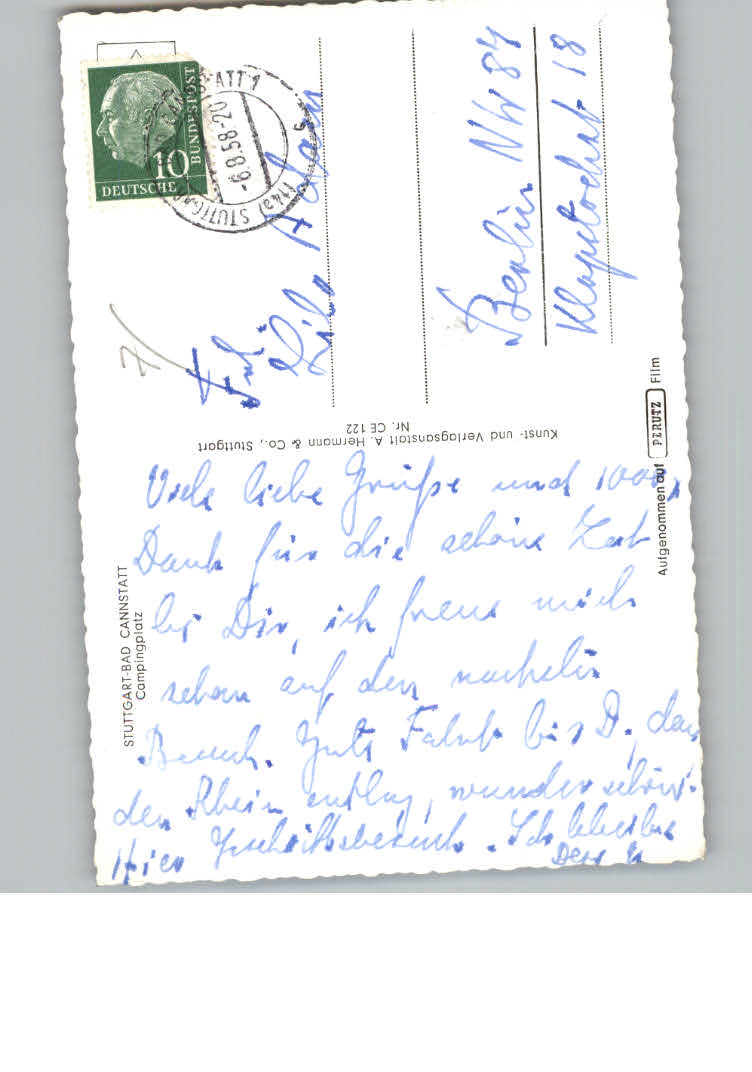 CANNSTATT 1
(14a) STUTTGART
-6.8.58-20
10
DEUTSCHE
BUNDESPOST
Frl.
Lilo Adam
Berlin NW 87
Klopstockstr 18
7/
Kunst- und Verlagsanstalt A. Hermann & Co., Stuttgart
Nr. CE 122
Aufgenommen auf PERUTZ Film
STUTTGART-BAD CANNSTATT
Campingplatz
Viele liebe Grüße und 1000
Dank für die schöne Zeit
bei Dir, ich freue mich
schon auf den nächsten
Besuch. Gute Fahrt bis D., dann
den Rhein entlang, wunderschön.
Hier Geschäftsbesuch. Ich bleibe